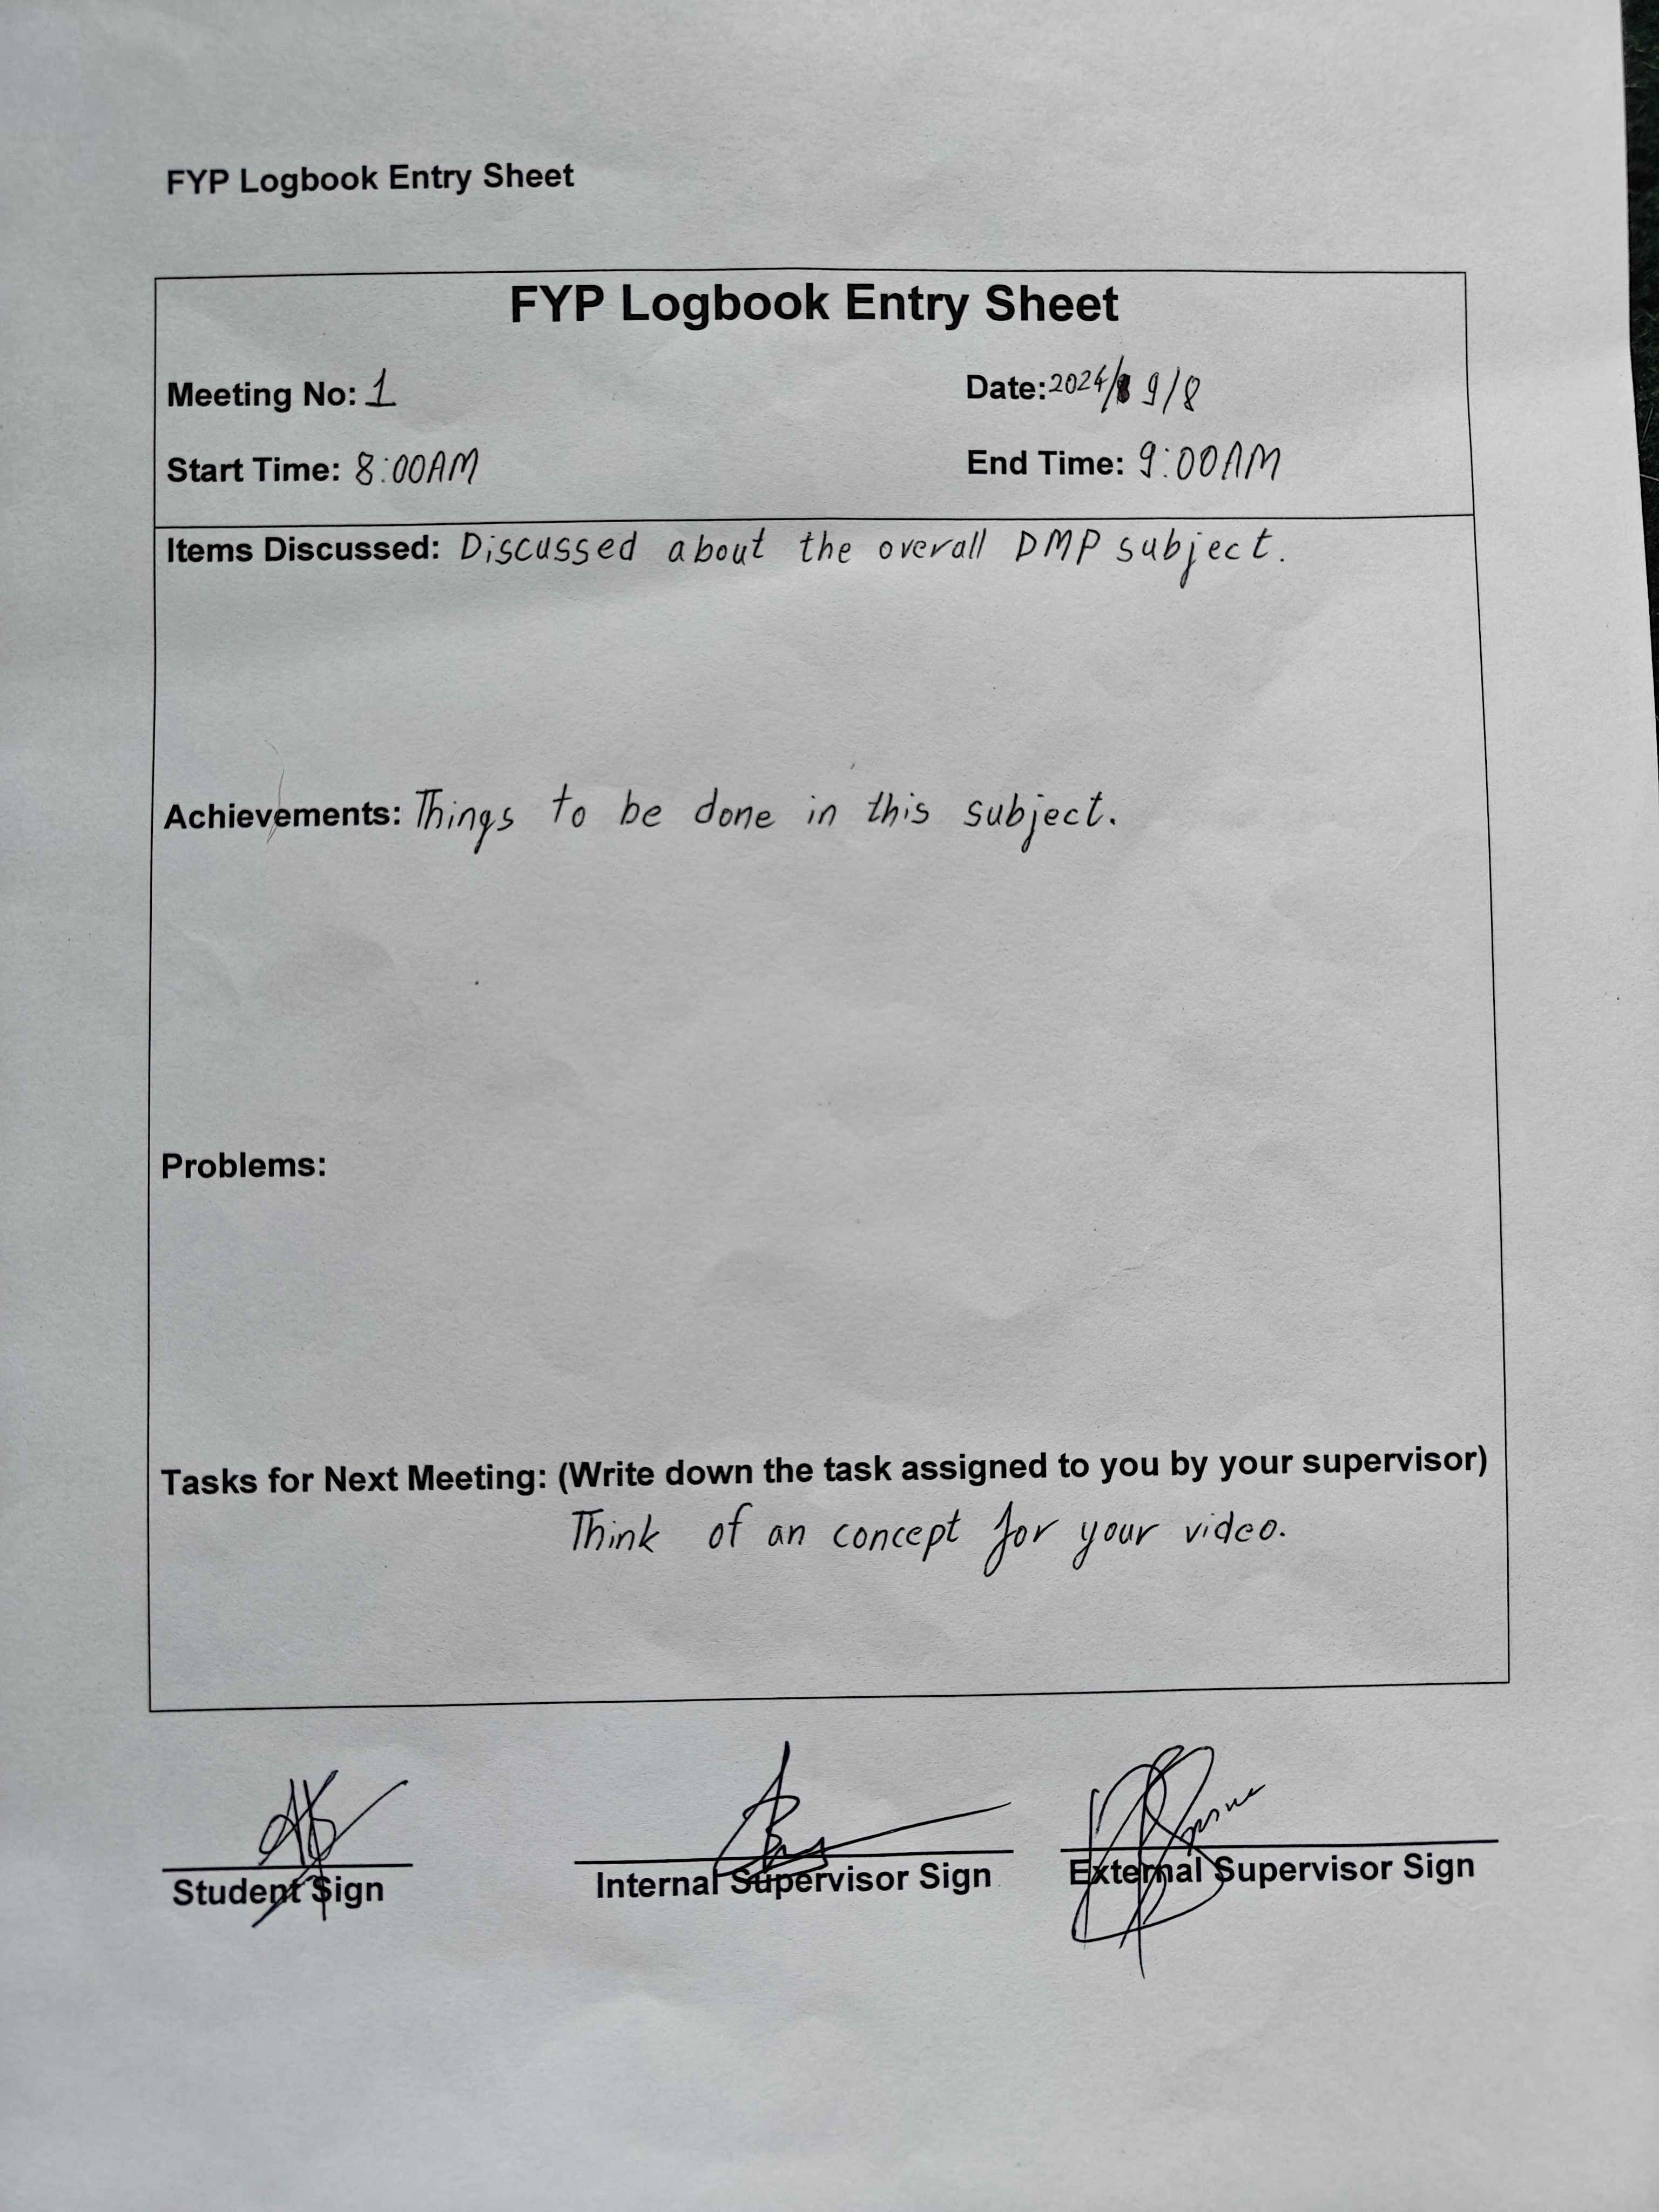 FYP Logbook Entry Sheet
FYP Logbook Entry Sheet
Meeting No: 1 Date: 2024/ 9/8
Start Time: 8:00AM End Time: 9:00AM
Items Discussed: Discussed about the overall DMP subject.
Achievements: Things to be done in this subject.
Problems:
Tasks for Next Meeting: (Write down the task assigned to you by your supervisor)
Think of an concept for your video.
Student Sign Internal Supervisor Sign External Supervisor Sign